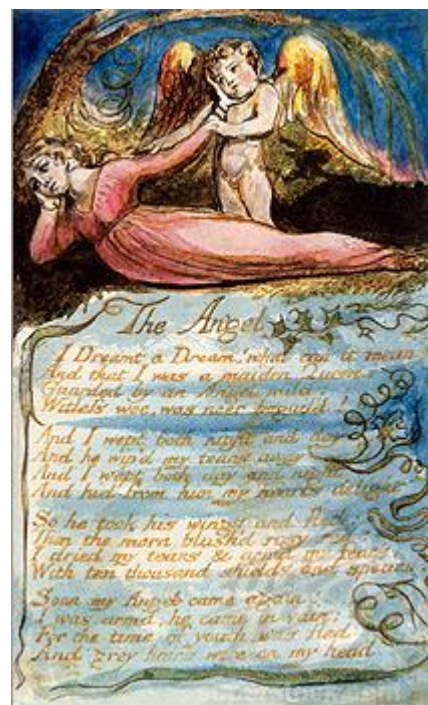 The Angel
I Dreamt a Dream! what can it mean
And that I was a maiden Queen
Guarded by an Angel mild
Witless woe, was neer beguil'd!
And I wept both night and day
And he wip'd my tears away
And I wept both day and night
And hid from him my hearts delight
So he took his wings and fled
Then the morn blush'd rosy red
I dried my tears & armd my fears,
With ten thousand shields and spears.
Soon my Angel came again:
I was arm'd, he came in vain:
For the time of youth was fled
And grey hairs were on my head